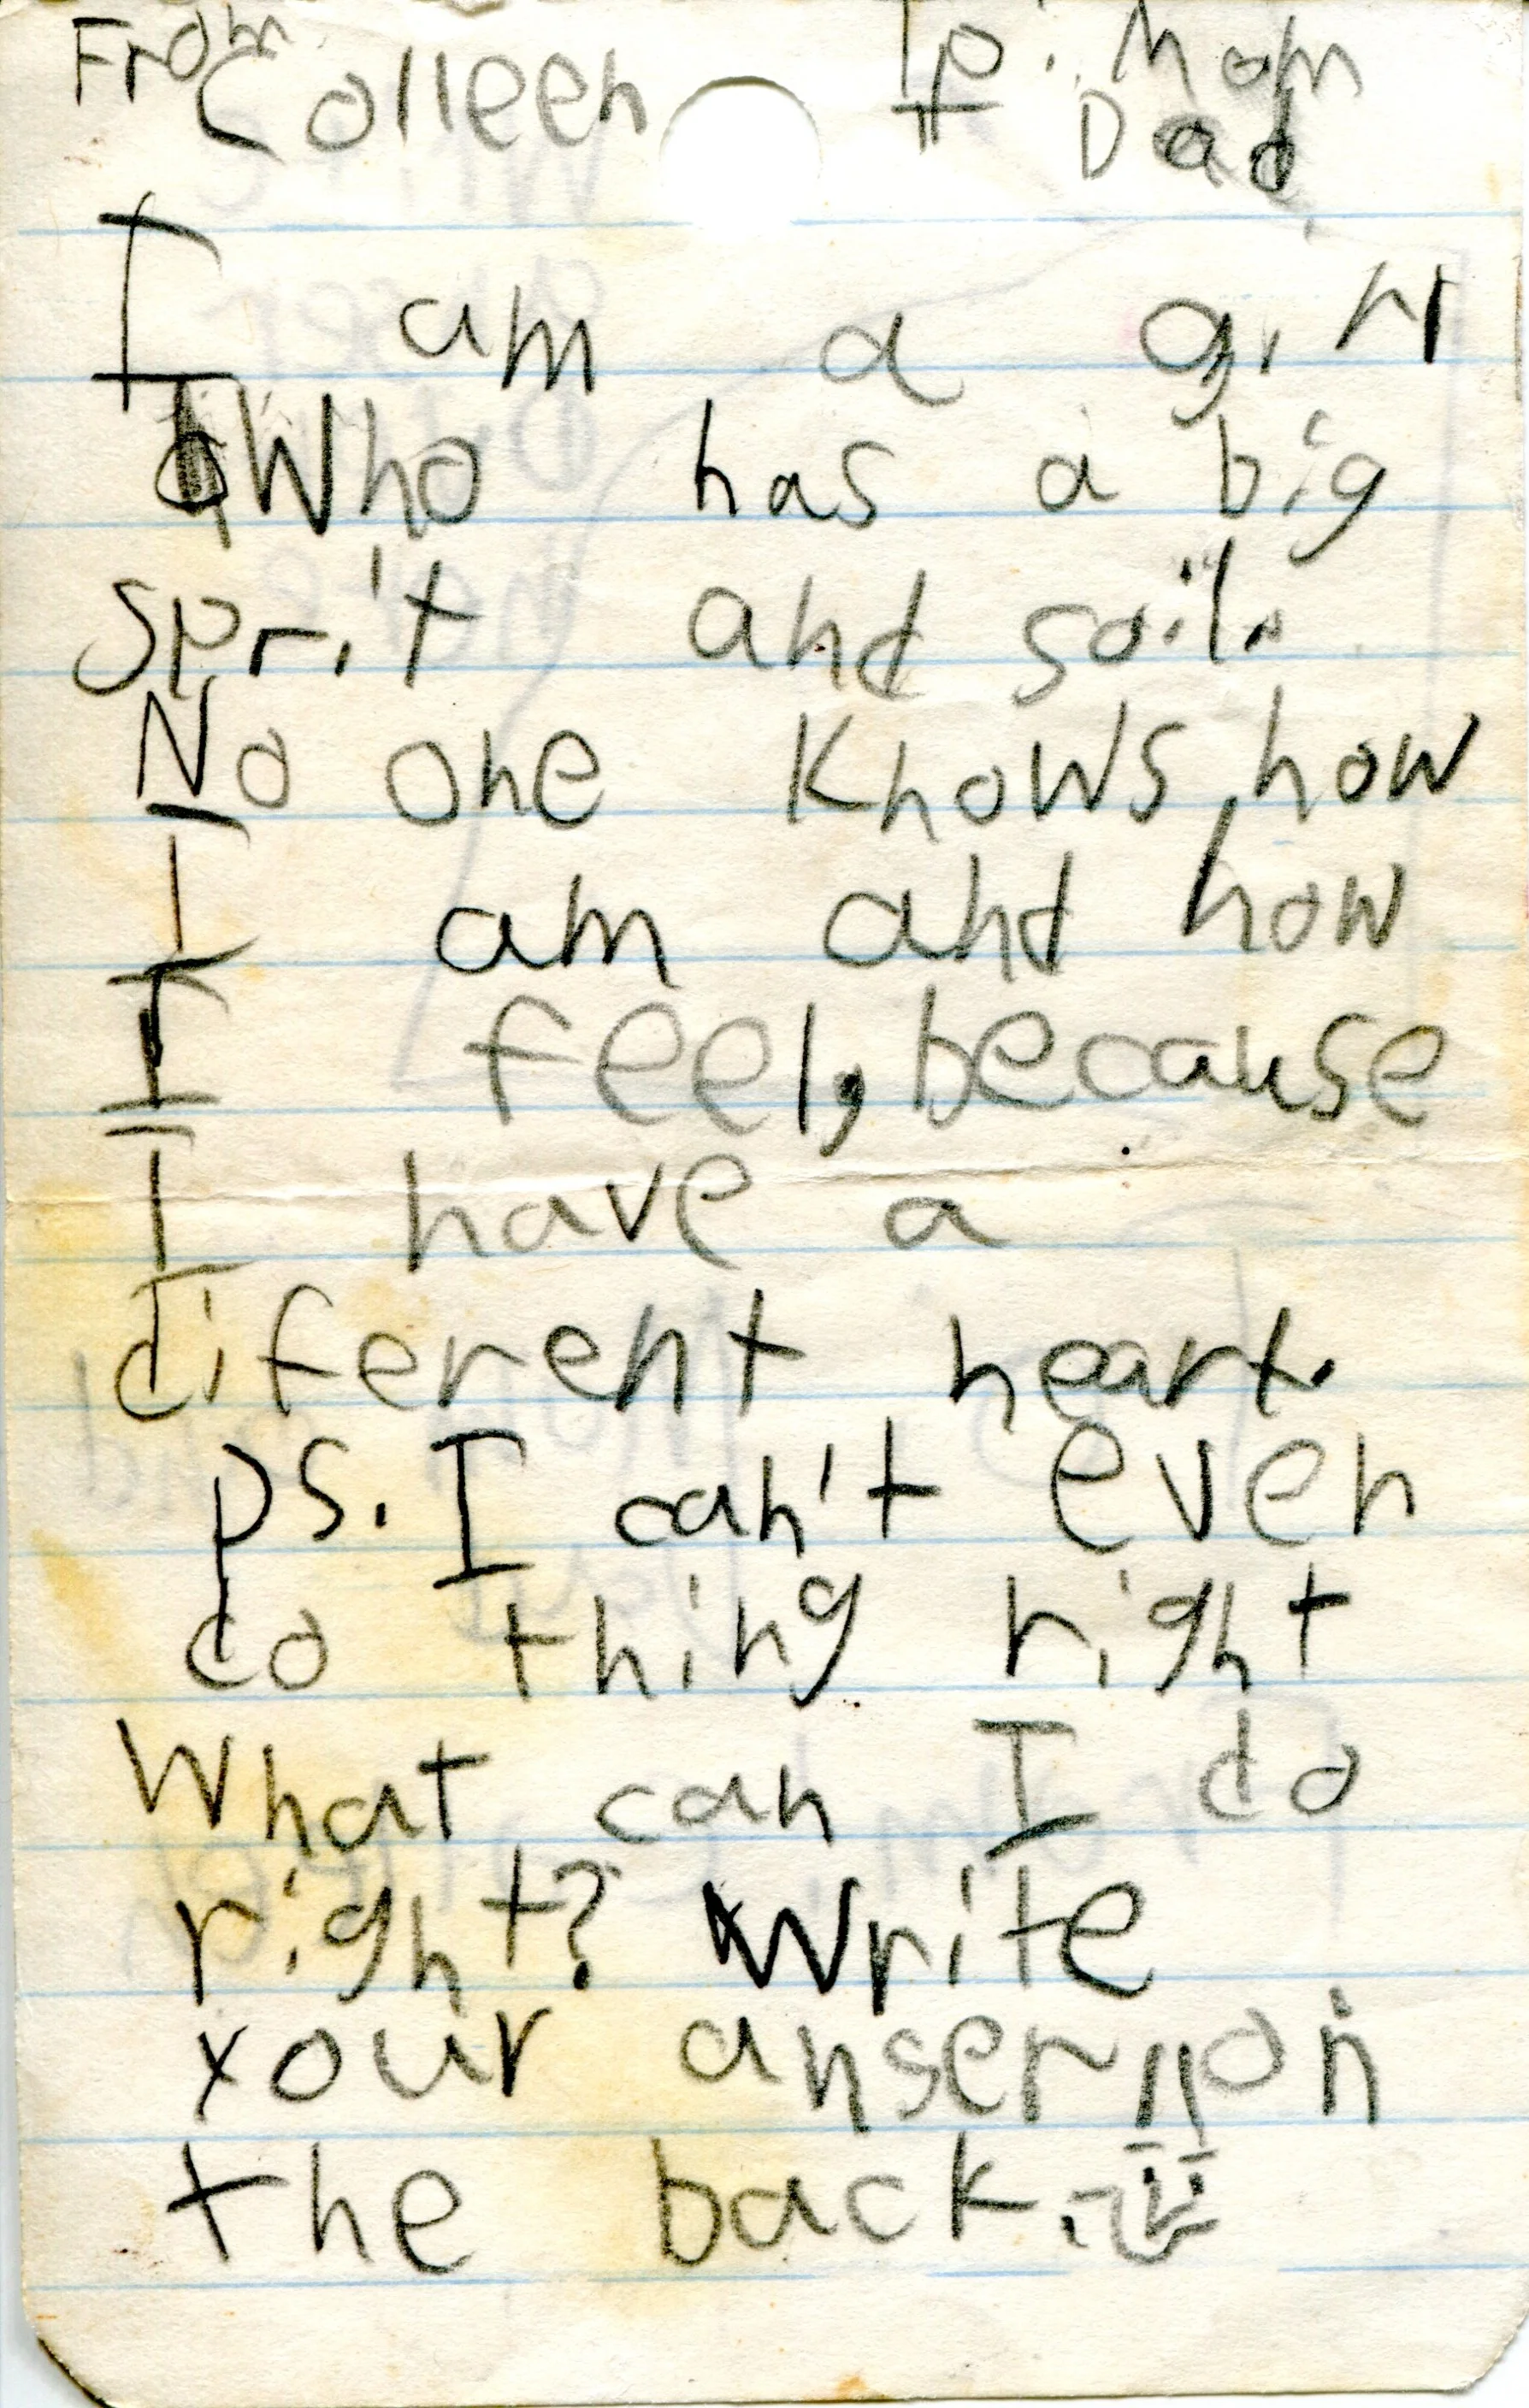 From Colleen To: Mom
+ Dad
I am a girl
Who has a big
sprit and soil.
No one knows how
I am and how
I feel, because
I have a
diferent heart.
ps. I can't even
do thing right
What can I do
right? Write
your anser on
the back.